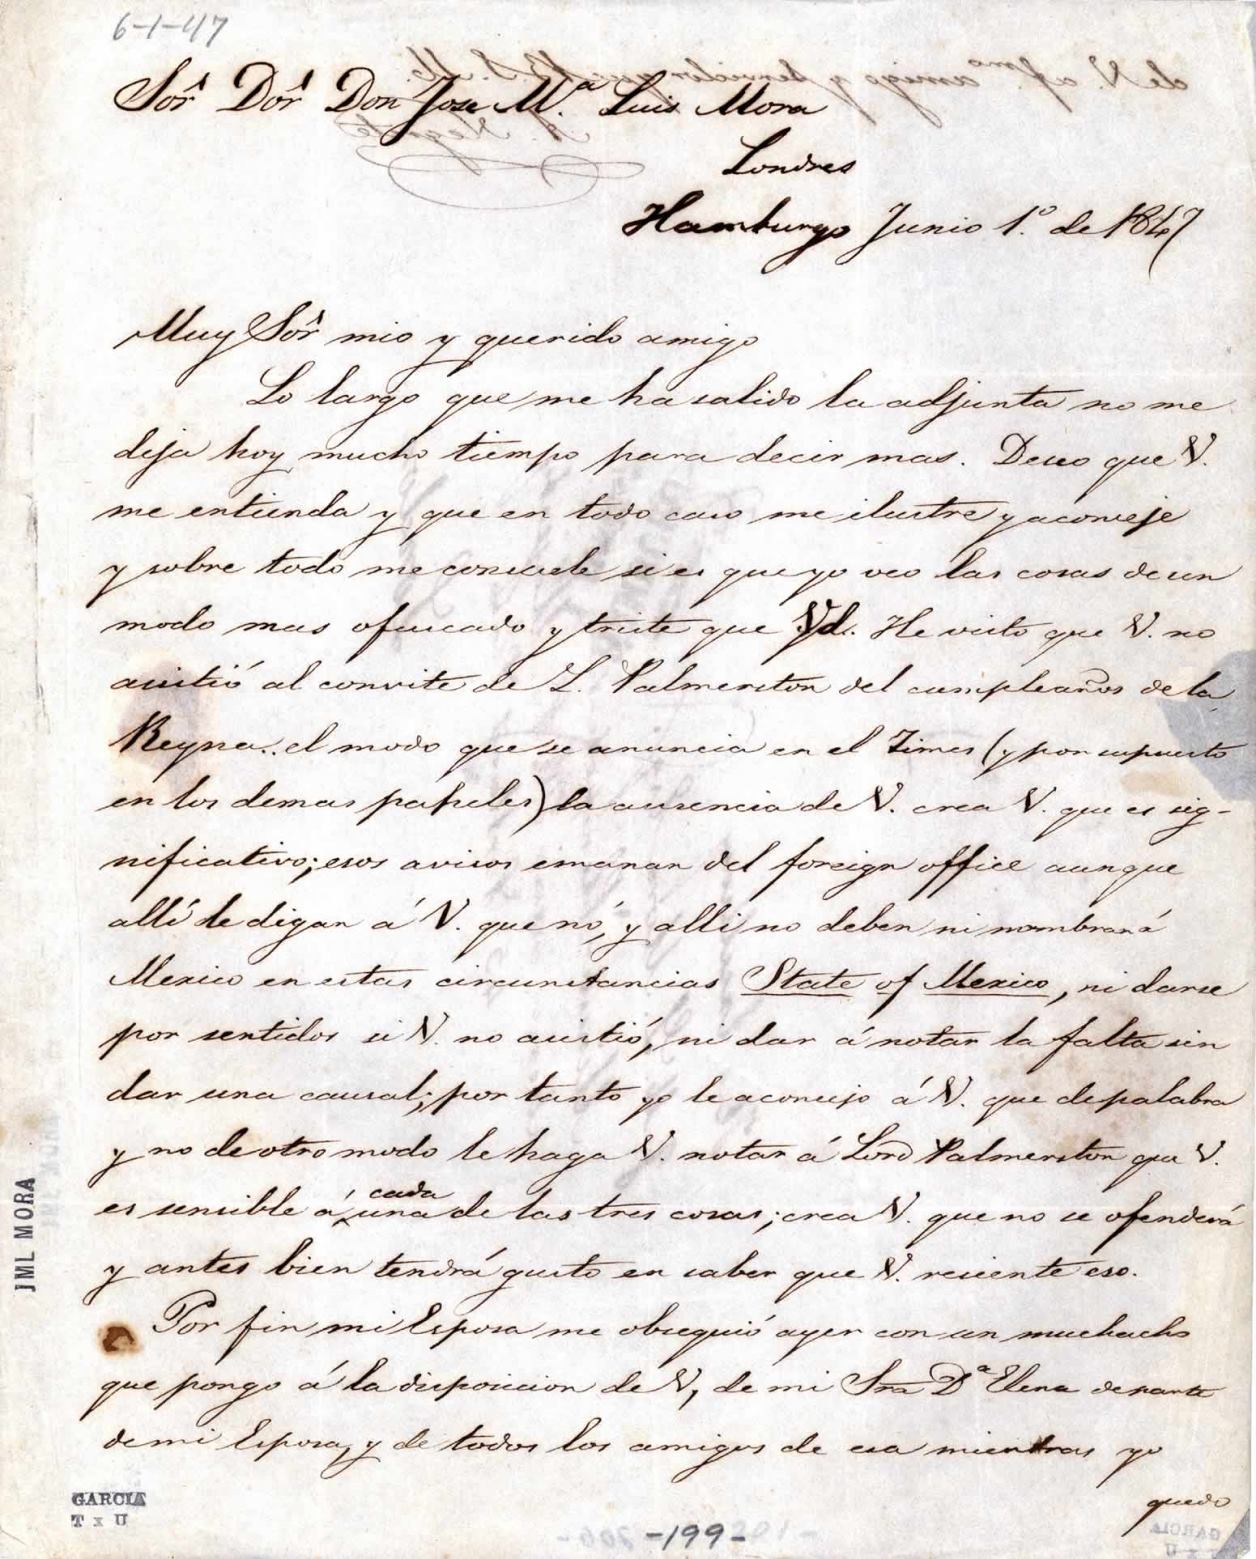 6-1-47
Sor Dor Don Jose M.ª Luis Mora
Londres
Hamburgo Junio 1.º de 1847
Muy Sor mio y querido amigo
Lo largo que me ha salido la adjunta no me
deja hoy mucho tiempo para decir mas. Deseo que V.
me entienda y que en todo caso me ilustre y aconseje
y sobre todo me consuele si es que yo veo las cosas de un
modo mas ofuscado y triste que Vd. He visto que V. no
asistió al convite de L. Palmerston del cumpleaños de la
Reyna.. el modo que se anuncia en el Times (y por supuesto
en los demas papeles) la ausencia de V. crea V. que es sig-
nificativo; esos avisos emanan del foreign office aunque
allí le digan á V. que nó, y alli no deben ni nombrar á
Mexico en estas circunstancias State of Mexico, ni darse
por sentidos si V. no asistió, ni dar á notar la falta sin
dar una causal; por tanto yo le aconsejo á V. que de palabra
y no de otro modo le haga V. notar á Lord Palmerston que V.
es sensible á cada una de las tres cosas; crea V. que no se ofenderá
y antes bien tendrá gusto en saber que V. resiente eso.
Por fin mi Esposa me obsequió ayer con un muchacho
que pongo á la disposicion de V, de mi Sra Dª Elena de parte
de mi Esposa, y de todos los amigos de esa mientras yo
quedo
JML MORA
GARCIA
T x U
-199-